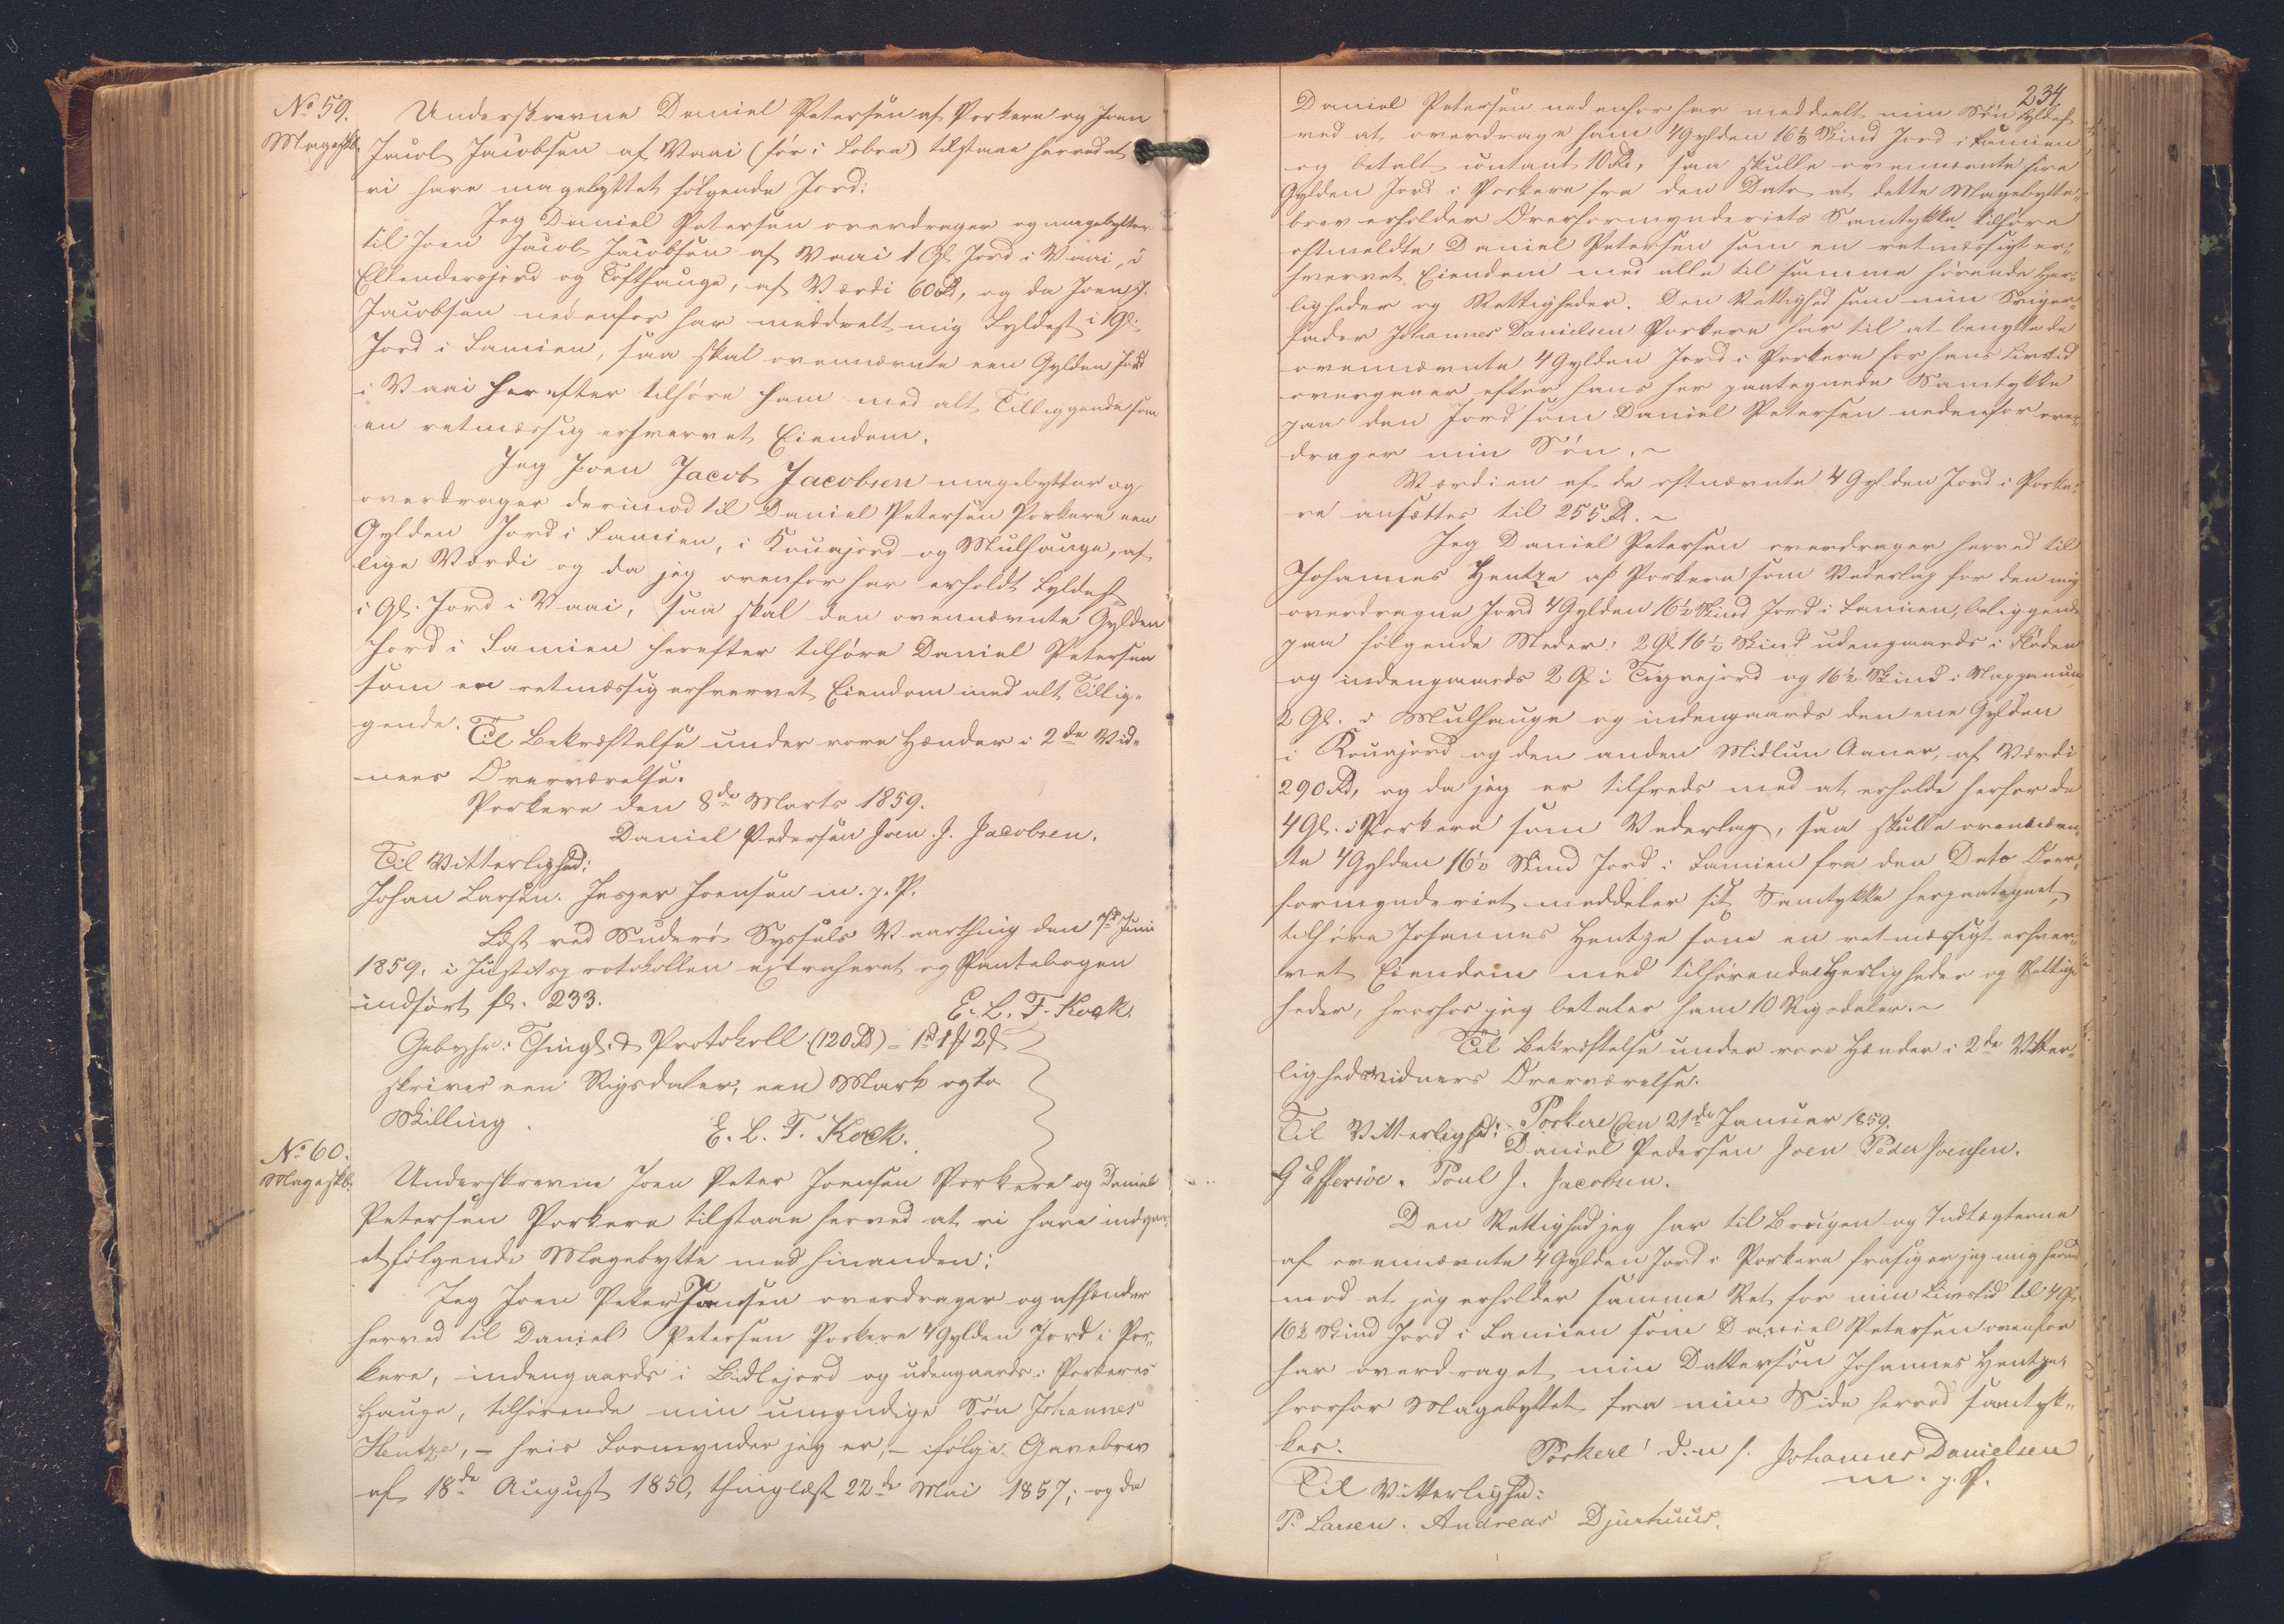 No 59.
Mageskb.
Underskrevne Daniel Petersen af Porkere og Joen
Jacob Jacobsen af Vaai (før i Lobra) tilstaae herved at
vi have magebyttet følgende Jord:
Jeg Daniel Petersen overdrager og magebytter
til Joen Jacob Jacobsen af Vaai 1 Gl. Jord i Vaai, i
og Tofthauge, af Værdi 60 Rd, og da Joen J.
Jacobsen nedenfor har meddeelt mig Fyldest i 1 Gl.
Jord i Famien, saa skal ovennævnte een Gylden Jord
i Vaai herefter tilhøre ham med alt Tilliggende som
en retmæssig erhvervet Eiendom.
Jeg Joen Jacob Jacobsen magebytter og
overdrager derimod til Daniel Petersen Porkere een
Gylden Jord i Famien, i Kruajord og Mulhauge, af
lige Værdi og da jeg ovenfor har erholdt Fyldest
i Gl. Jord i Vaai, saa skal den ovennævnte Gylden
Jord i Famien herefter tilhøre Daniel Petersen
som en retmæssig erhvervet Eiendom med alt Tillig-
gende.
Til Bekræftelse under vore Hænder i 2de Vid-
ners Overværelse.
Porkere den 8de Marts 1859.
Daniel Pedersen Joen. J. Jacobsen.
Til Vitterlighed:
Johan Larsen. Jesper Joensen m. p. P.
Læst ved Suderø Syssels Vaarthing den Juni
1859, i Justitsprotokollen extraheret og Pantebogen
indført fol. 233.
E. L. T. Kock.
Gebyhr: Thingl. & Protokoll. (120 Rd) = 1rd 1 # 2 s
skriver een Rigsdaler, een Mark og to
Skilling.
E. L. T. Kock.
No 60.
Mageskb.
Underskrevne Joen Peter Joensen Porkere og Daniel
Petersen Porkere tilstaae herved at vi have indgaa-
et følgende Magebytte med hinanden:
Jeg Joen Peter Joensen overdrager og afhænder
herved til Daniel Petersen Porkere 4 Gylden Jord i Por-
kere, indengaards i Bidlejord og udengaards i Porkeres
Hauge, tilhørende min umyndige Søn Johannes
Hentze, – hvis Formynder jeg er, – ifølge Gavebrev
af 18de August 1850, thinglæst 22de Mai 1857; og da
234
Daniel Petersen nedenfor har meddeelt min Søn Fyldest
ved at overdrage ham 4 Gylden 16½ Skind Jord i Famien
og betalt contant 10 Rd, saa skulle ovennævnte fire
Gylden Jord i Porkere fra den Dato at dette Magebytte-
brev erholder Overformynderiets Samtykke tilhøre
oftmeldte Daniel Petersen som en retmæssigt er-
hvervet Eiendom med alle til samme hørende Her-
ligheder og Rettigheder. Den Rettighed som min Sviger-
fader Johannes Danielsen Porkere har til at benytte de
ovennævnte 4 Gylden Jord i Porkere for hans Livstid
overgaaer efter hans her paategnede Samtykke
paa den Jord som Daniel Petersen nedenfor over-
drager min Søn. ~
Værdien af de oftnævnte 4 Gylden Jord i Porke-
re ansættes til 255 Rd. ~
Jeg Daniel Petersen overdrager herved til
Johannes Hentze af Porkere som Vederlag for den mig
overdragne Jord 4 Gylden 16½ Skind Jord i Famien, beliggende
paa følgende Steder: 2 Gl. 16½ Skind udengaards i Fløden
og indengaards 2 Gl. i Tigrejord og 16½ Skind i
2 Gl. i Mulhauge og indengaards den ene Gylden
i Kruajord og den anden Midlun Aaner, af Værdi
290 Rd, og da jeg er tilfreds med at erholde herfor de
4 Gl. i Porkere som Vederlag, saa skulle ovennævn-
te 4 Gylden 16½ Skind Jord i Famien fra den Dato Over-
formynderiet meddeler sit Samtykke herpaategnet,
tilhøre Johannes Hentze som en retmæssigt erhver-
vet Eiendom med tilhørende Herligheder og Rettig-
heder, hvorhos jeg betaler ham 10 Rigsdaler. ~
Til Bekræftelse under vore Hænder i 2de Vitter-
lighedsvidners Overværelse.
Porkere den 21de Januar 1859.
Til Vitterlighed: Daniel Pedersen Joen Peder Joensen.
G Effersöe. Poul J. Jacobsen.
Den Rettighed jeg har til Brugen og Indtægterne
af ovennævnte 4 Gylden Jord i Porkere frasiger jeg mig herved
mod at jeg erholder samme Ret for min Livstid til 4 Gl.
16½ Skind Jord i Famien som Daniel Petersen ovenfor
har overdraget min Dattersøn Johannes Hentze,
hvorfor Magebyttet fra min Side herved samtyk-
kes.
Porkere d. u s. Johannes Danielsen
m. p. P.
Til Vitterlighed:
P. Larsen. Andreas Djurhuus.